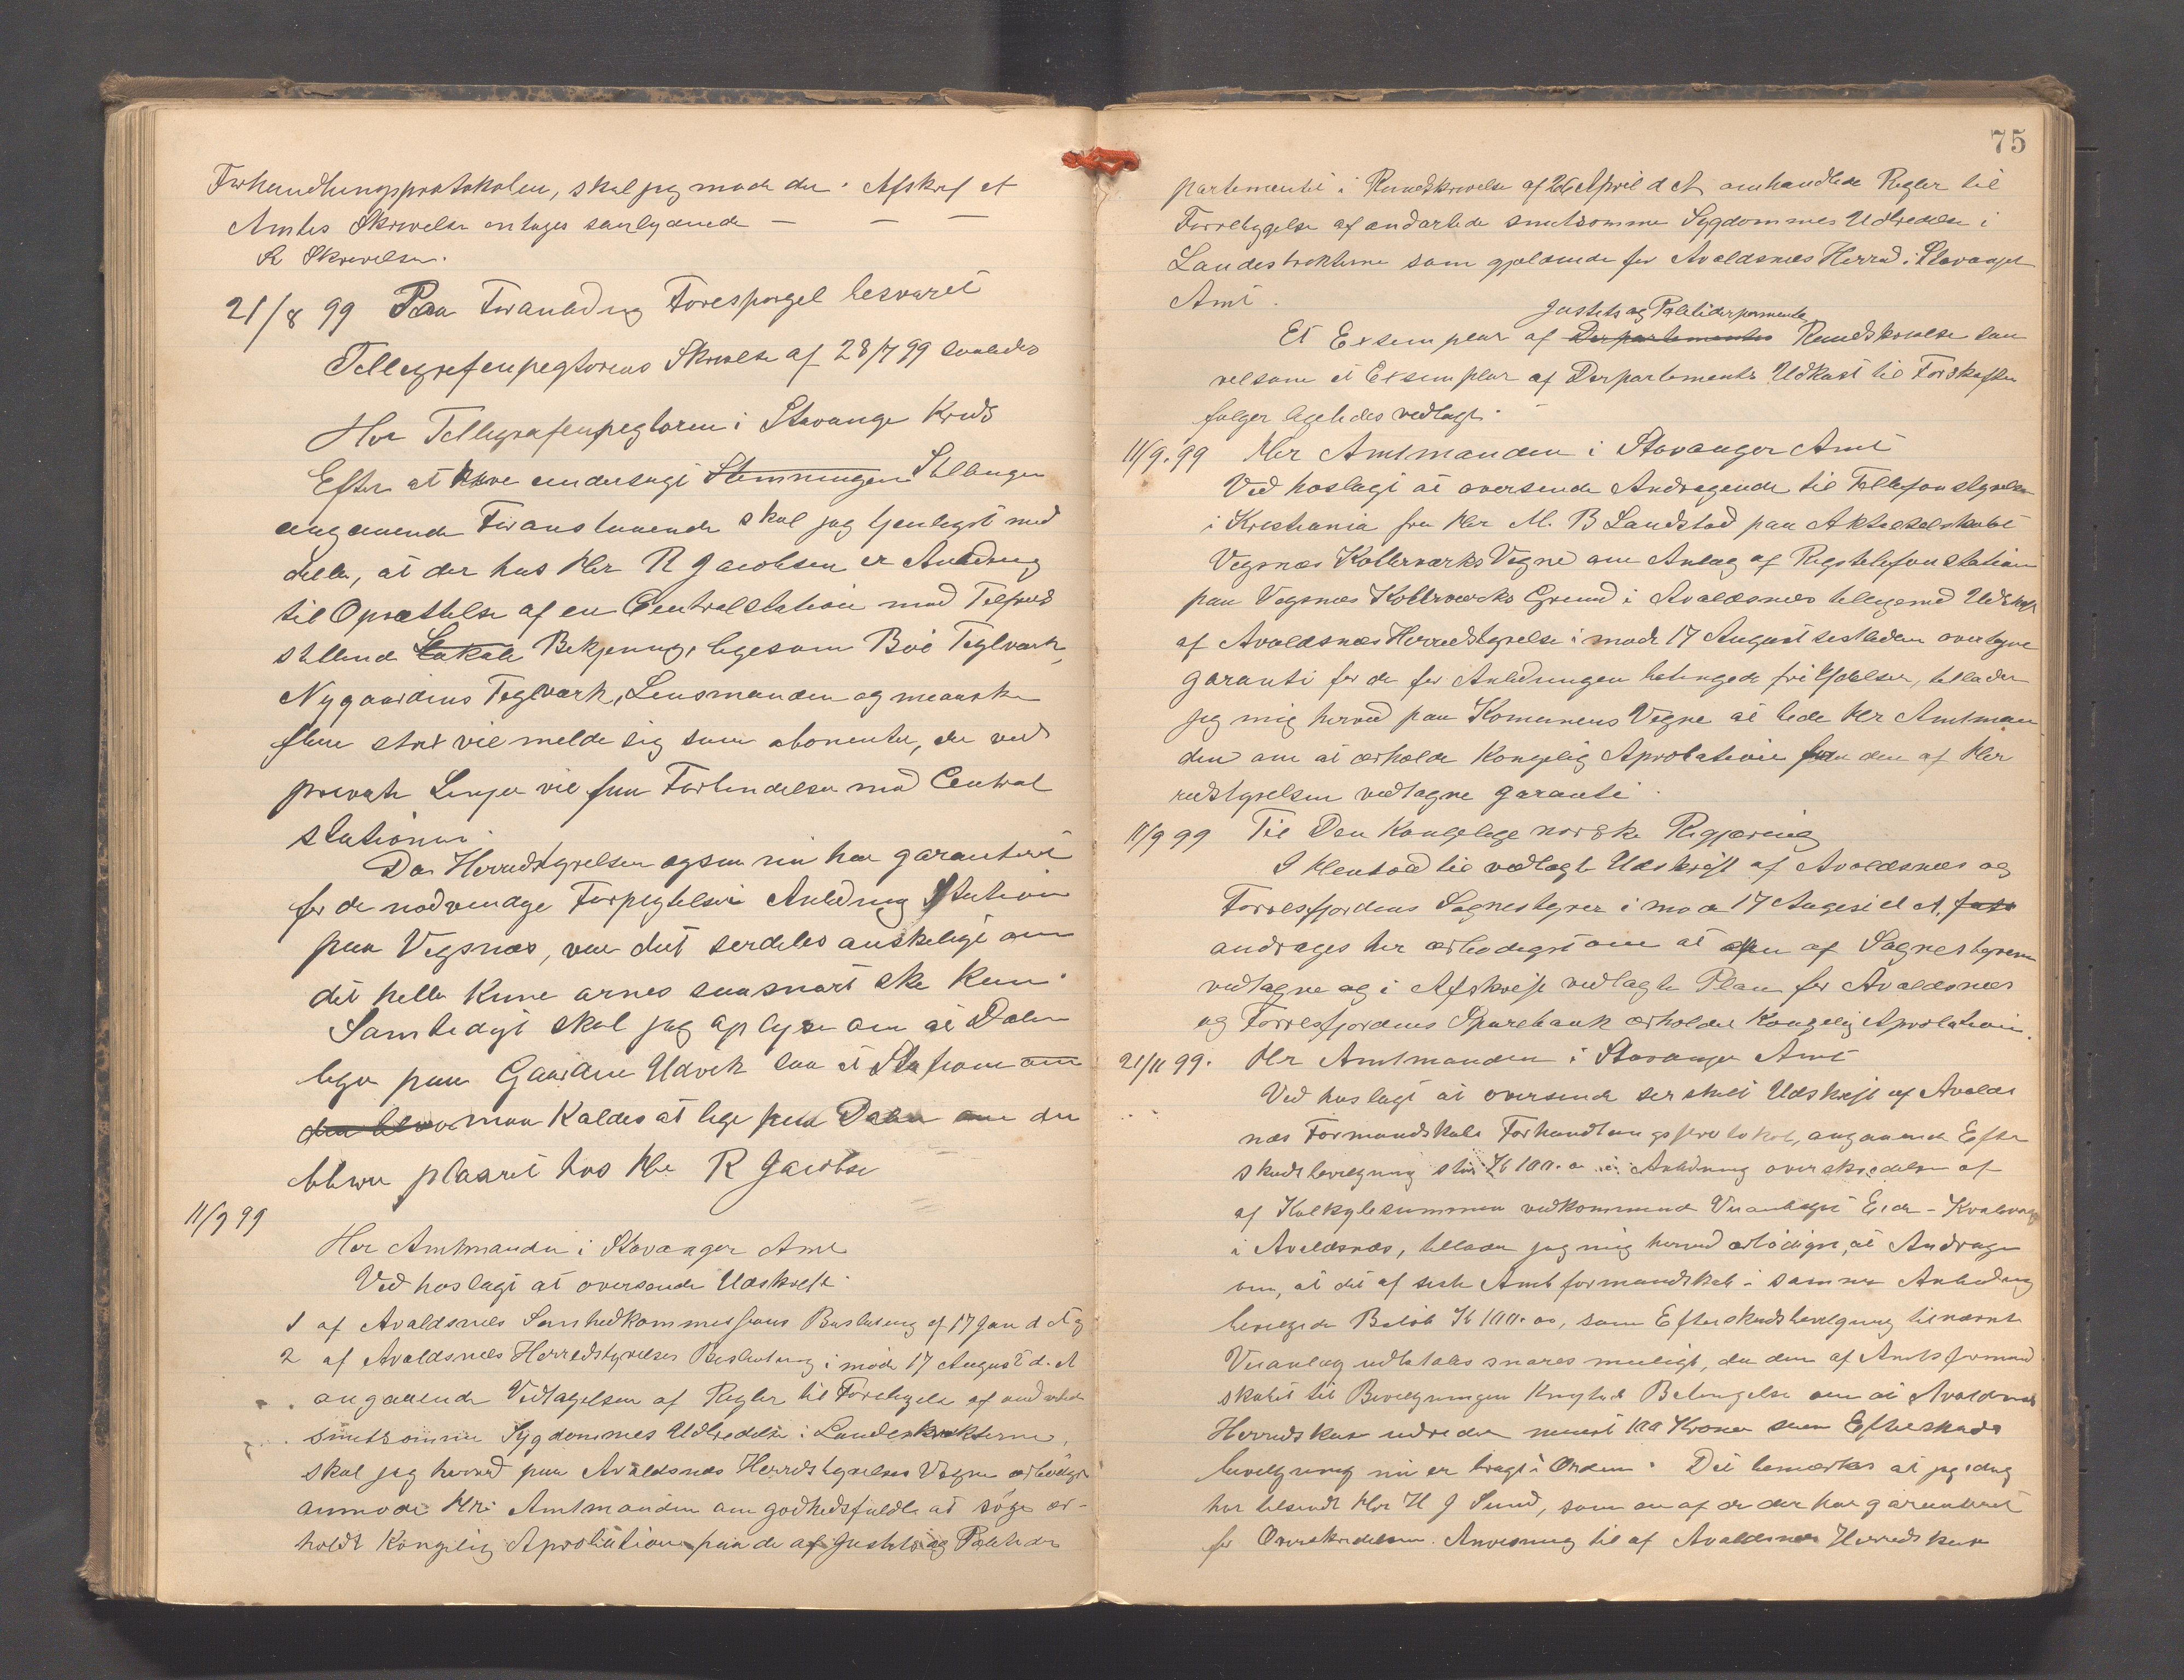 Forhandlingsprotokolen, skal jeg mode der. Afskrif et
Amtes Skrivelse
R Skrivelsen.
21/8 99 Paa Foranledig Forespørgel besvaret
Tellegrafenspegtorens Skrivelse af 28/7 99 saaledes
Hr Tellegrafenspegtoren i Stavange Kreds
Efter at have undersøgt Stemningen Stllingen
angaaende Foranstaaende skal jeg tjenligst med
dele, at der hos Hr R Jacobsen er Anledning
til Oprættelse af en Centralstation med Tilfreds
stillend Lokale Betjening, ligesom Bøe Teglværk,
Nygaardens Teglværk, Lensmanden og maaske
flere strx vil melde sig som abonenter, der ved
private Linjer vil faa Forbindelse med Central
stationen.
Da Herredstyrelsen ogsaa nu har garanteret
for de nødvendige Forpligtelser i Anledning Station
paa Vigsnæs, var det serdeles ønskeligt om
det hele kune ornes saasnart ske kun.
Samtidigt skal jeg oplyse om at Dalen
liger paa Gaarden Udvik saa at Station om
den bliver maa kaldes at lige paa Dalen om den
bliver plasert hos Hr R Jacobse
11/9 99
Her Amtmanden i Stavanger Amt
Ved hoslagt at oversende Udskrift
1 af Avaldsnæs Sunhedkommissions Beslutning af 17 Jan d A og
2 af Avaldsnæs Herredstyrelses Beslutning i møde 17 August d. A
angaaende Vedtagelsen af Regler til Forebygelse af ondartede
smitsomme Sygdommes Udbredelse i Landestrækkterne,
skal jeg herved paa Avaldsnæs Herredstyrelses Vegne ærbødigst
anmode Hr. Amtmanden om godhedsfuldt at søge er-
holdt Kongelig Aprobation paa de af Justits og Politide
75
partementet i Rundskrivelse af 26 April d A omhandlede Regler til
Forrebygelse af ondartede smitsomme Sygdommes Udbredelse i
Landestrækterne som gjældende for Avaldsnæs Herred i Stavanger
Amt.
Justits og Politiderpemente
Et Exsemplar af Derpartementes Rundskrivelse saa
velsom et Exsemplar af Derpartements Udkast til Forskrifter
følger ligeledes vedlagt.
11/9. 99 Hr Amtmanden i Stavanger Amt
Ved hoslagt at oversende Andragende til Tellefonstyrelsen
i Kristiania fra Hr M. B Landstad paa Aktieselskabet
Vigsnæs Kobberværks Vegne om Anlæg af Rigstelefonstation
paa Vigsnæs Kobberværks Grund i Avaldsnæs tilligemed Udskrift
af Avaldsnæs Herredstyrelse i møde 17 August sistleden overtagne
garanti for de for Anledningen betingede fri Ydelser, tillader
jeg mig herved paa Komunens Vegne at bede Hr Amtman
den om at erholde Kongelig Aprobation paa den af Her
redstyrelsen vedtagne garanti.
11/9 99 Til Den Kongelige norske Regjæring
I Henhold til vedlagte Udskrift af Avaldsnæs og
Torvesfjordens Sognestyrer i møde 17 August d A.
andrages her ærbødigst om at den af Sognestyrerne
vedtagne og i Afskrift vedlagte Plan for Avaldsnæs
og Torvesfjordens Sparebank erholder Kongelig Aprobation.
21/11 99. Hr Amtmanden i Stavanger Amt
Ved hoslagt at oversende serskilt Udskrift af Avalds
næs Formandskabs Forhandlingsprotokol, angaaende Efter
skudsbevilgning stor Kr 100.00 i Anledning overskredelse af
af Kalkylesummen vedkommende Veianlægget Eide - Kvalavaag
i Avaldsnæs, tillader jeg mig herved ærbødigst, at Andrage
om, at det af siste Amtsformandskab i samme Anledning
bevilgede Beløb Kr 100.00, som Efterskudsbevilgning til nævnte
Veianlæg udbetales snares mueligt, da den af Amtsformand
skabet til Bevilgningen knyttede Betingelse om at Avaldsnæs
Herredskas udreder nemt 100 Kroner som Efterskuds
bevilgning nu er bragt i Orden. Det bemærkes at jeg idag
har tilsendt Hr H J Sund, som en af de der har garanteret
for Overskredelsen. Anvisning til af Avaldsnæs Herredskas